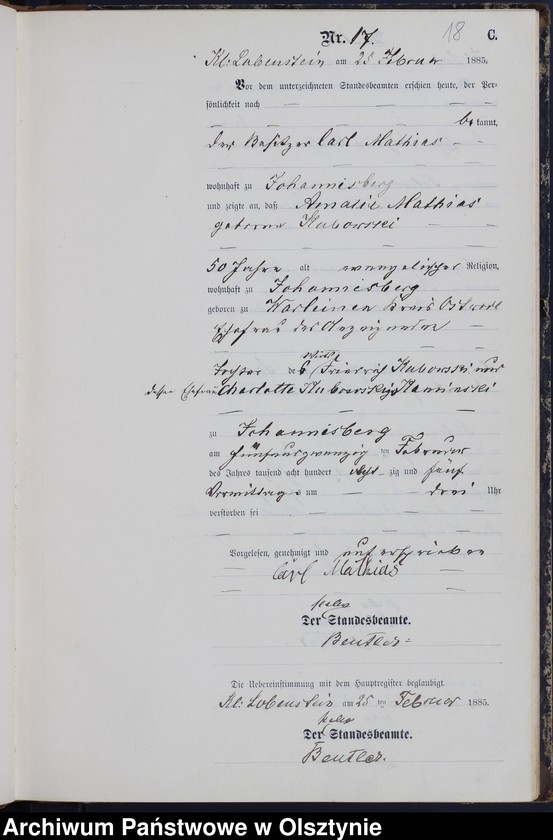 Nr. 17. 18 C.
Kl: Lobenstein am 25 Februar 1885.
Vor dem unterzeichneten Standesbeamten erschien heute, der Per-
sönlichkeit nach
be kannt,
der Besitzer Carl Mathias
wohnhaft zu Johannisberg
und zeigte an, daß Amalie Mathias
geborene Kubowski
50 Jahre alt evangelischer Religion,
wohnhaft zu Johannisberg
geboren zu Kreis Osterode
Ehefrau des Anzeigenden
Tochter des Friedrich Kubowski und
dessen Ehefrau Charlotte Kubowski Kaminski
zu Johannisberg
am fünfundzwanzig ten Februar
des Jahres tausend acht hundert acht zig und fünf
Vormittags um drei Uhr
verstorben sei
Vorgelesen, genehmigt und unterschrieben
Carl Mathias
Der Standesbeamte.
Beutler
Die Uebereinstimmung mit dem Hauptregister beglaubigt.
Kl: Lobenstein am 25 ten Februar 1885.
Der Standesbeamte.
Beutler.
Archiwum Państwowe w Olsztynie